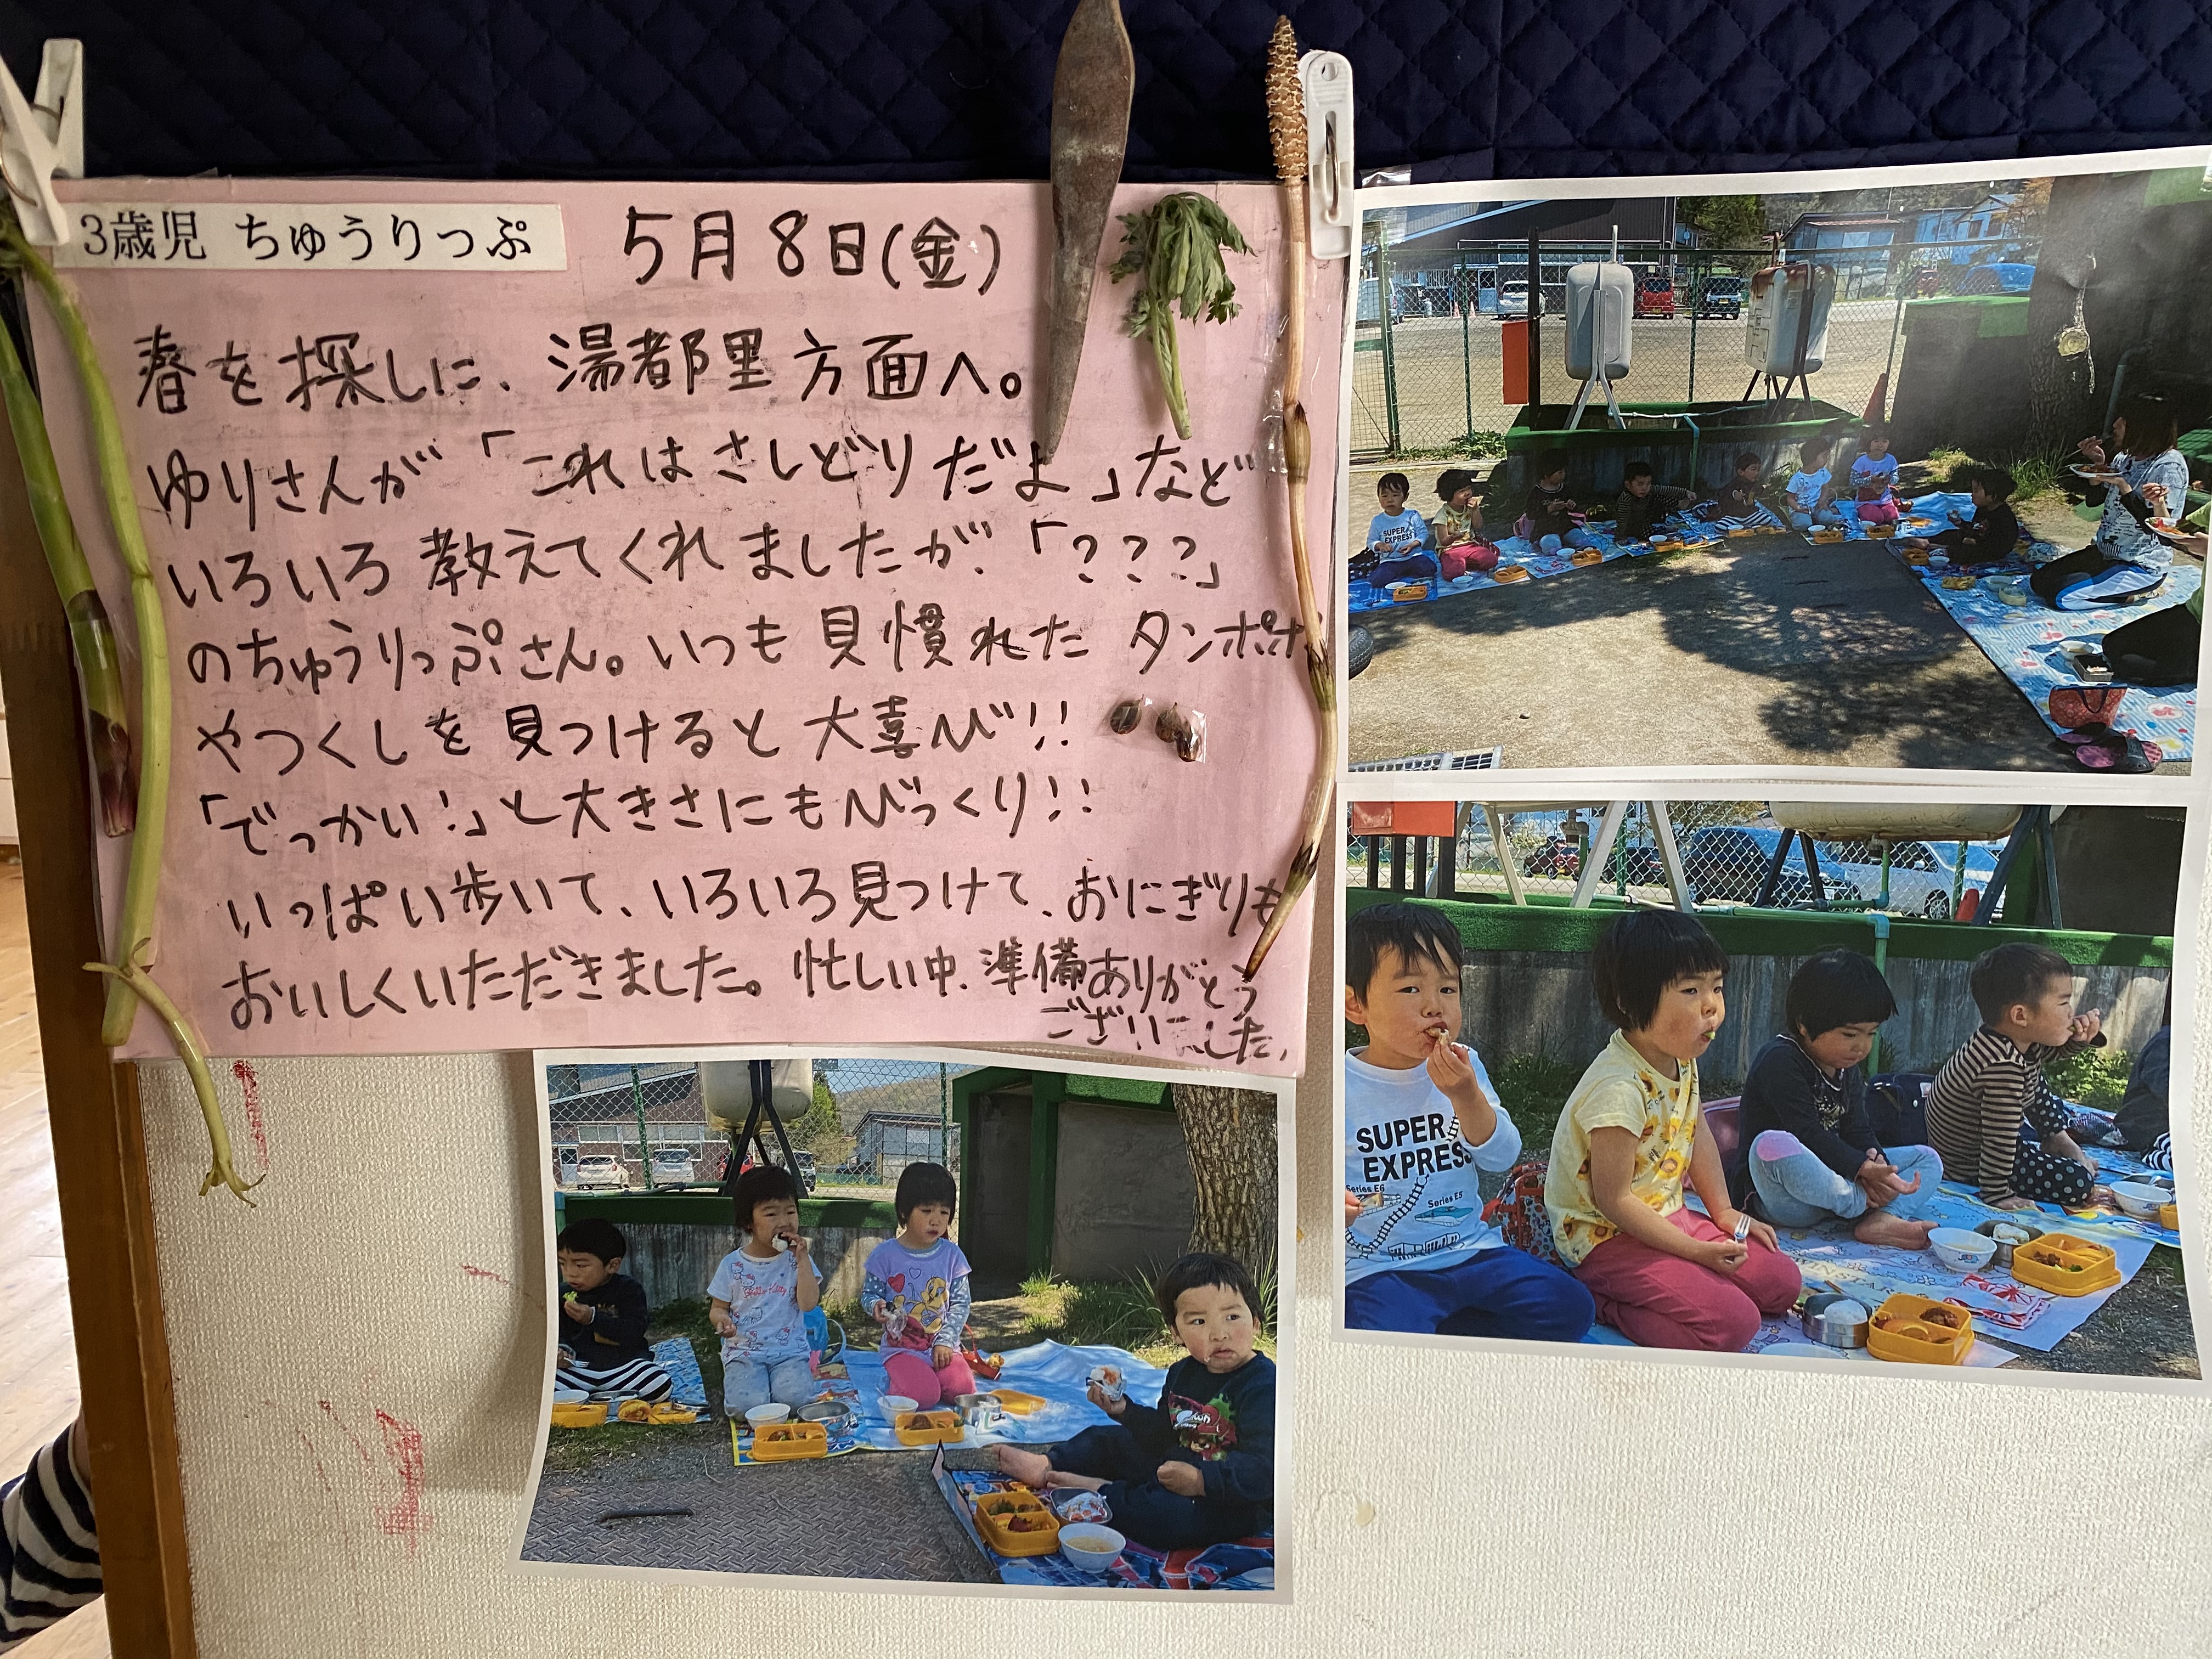 3歳児 ちゅうりっぷ
5月8日(金)
春を探しに、湯都里方面へ。
ゆりさんが「これはさしどりだよ」など
いろいろ教えてくれましたが「???」
のちゅうりっぷさん。いつも見慣れたタンポポ
やつくしを見つけると大喜び!!
「でっかい!」と大きさにもびっくり!!
いっぱい歩いて、いろいろ見つけて、おにぎりも
おいしくいただきました。忙しい中、準備ありがとう
ございました。
SUPER
EXPRESS
SUPER
EXPRESS
Series E6
Series E5